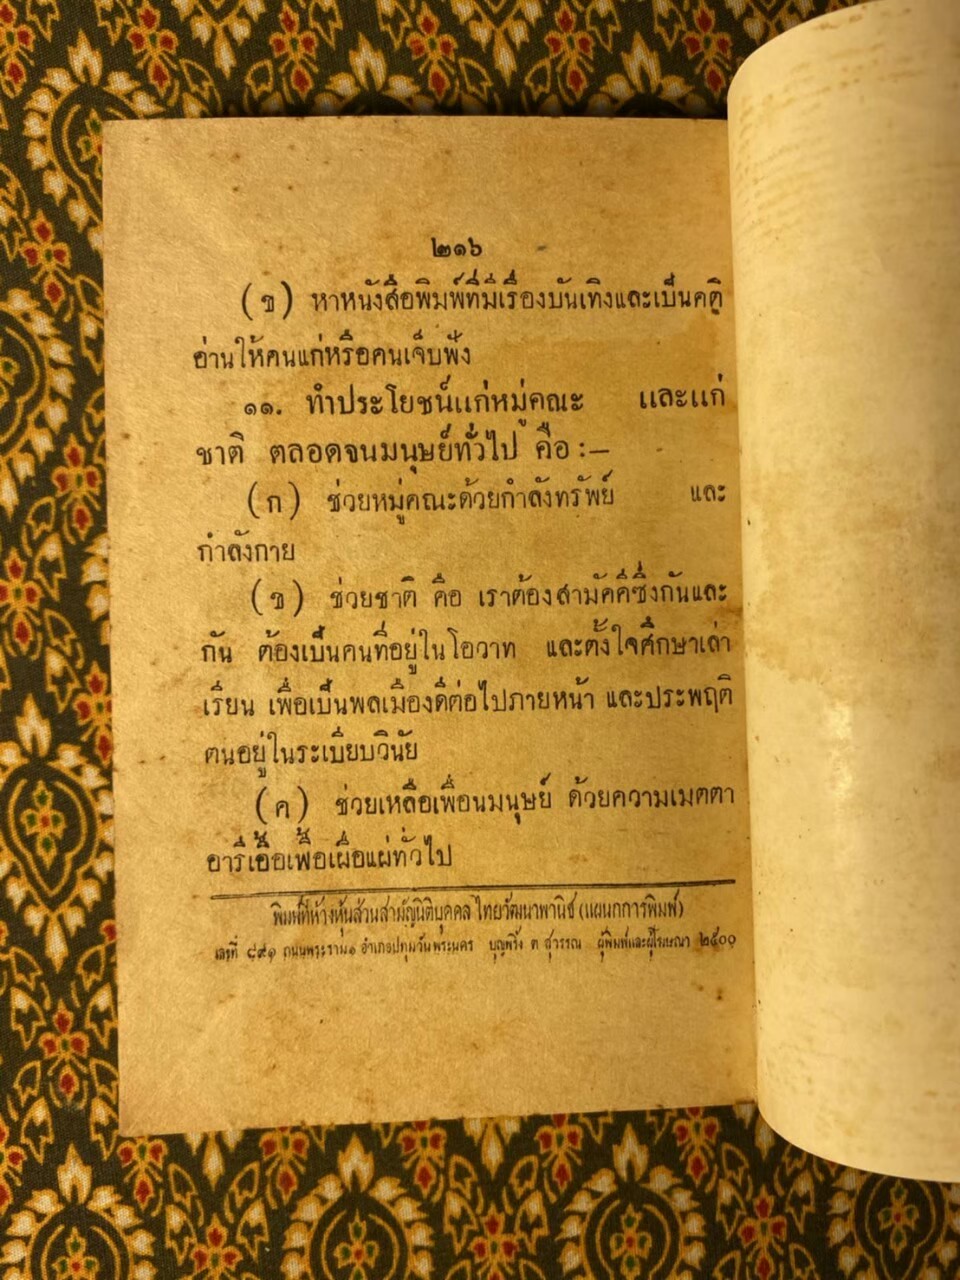 ๒๑๖
(ข) หาหนังสือพิมพ์ที่มีเรื่องบันเทิงและเป็นคติ
อ่านให้คนแก่หรือคนเจ็บฟัง
๑๑. ทำประโยชน์แก่หมู่คณะ และแก่
ชาติ ตลอดจนมนุษย์ทั่วไป คือ :—
(ก) ช่วยหมู่คณะด้วยกำลังทรัพย์ และ
กำลังกาย
(ข) ช่วยชาติ คือ เราต้องสามัคคีซึ่งกันและ
กัน ต้องเป็นคนที่อยู่ในโอวาท และตั้งใจศึกษาเล่า
เรียน เพื่อเป็นพลเมืองดีต่อไปภายหน้า และประพฤติ
ตนอยู่ในระเบียบวินัย
(ค) ช่วยเหลือเพื่อนมนุษย์ ด้วยความเมตตา
อารีเอื้อเฟื้อเผื่อแผ่ทั่วไป
พิมพ์ที่ห้างหุ้นส่วนสามัญนิติบุคคล ไทยวัฒนาพานิช (แผนกการพิมพ์)
เลขที่ ๘๙๑ ถนนพระราม๑ อำเภอปทุมวันพระนคร บุญพริ้ง ต สุวรรณ ผู้พิมพ์และผู้โฆษณา ๒๕๐๐